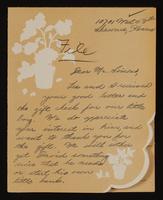 10701 West 67th
Shawnee, Kans
File
Dear Mr.
Leo and I received
your good letter and
the gift check for our little
boy. We do appreciate
your interest in him, and
want to thank you for
the gift. We will either
get David something
nice that he needs,
or start his own
little bank.